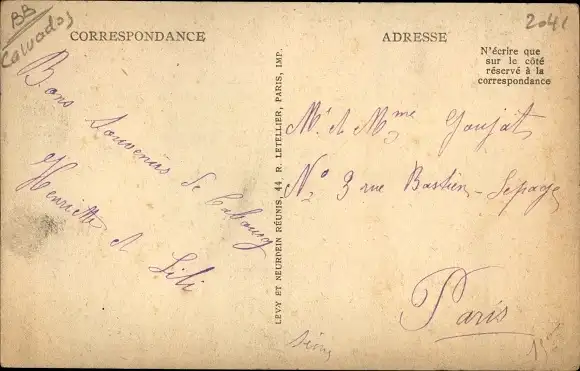 BB
Calvados
2041
CORRESPONDANCE
ADRESSE
N'écrire que
sur le côté
réservé à la
correspondance
Bons Souvenirs de Cabourg
Henriette et Lili
LEVY ET NEURDEIN RÉUNIS, 44, R. LETELLIER, PARIS, IMP.
Mr et Mme Goujat
No 3 rue Bastien-Lepage
Paris